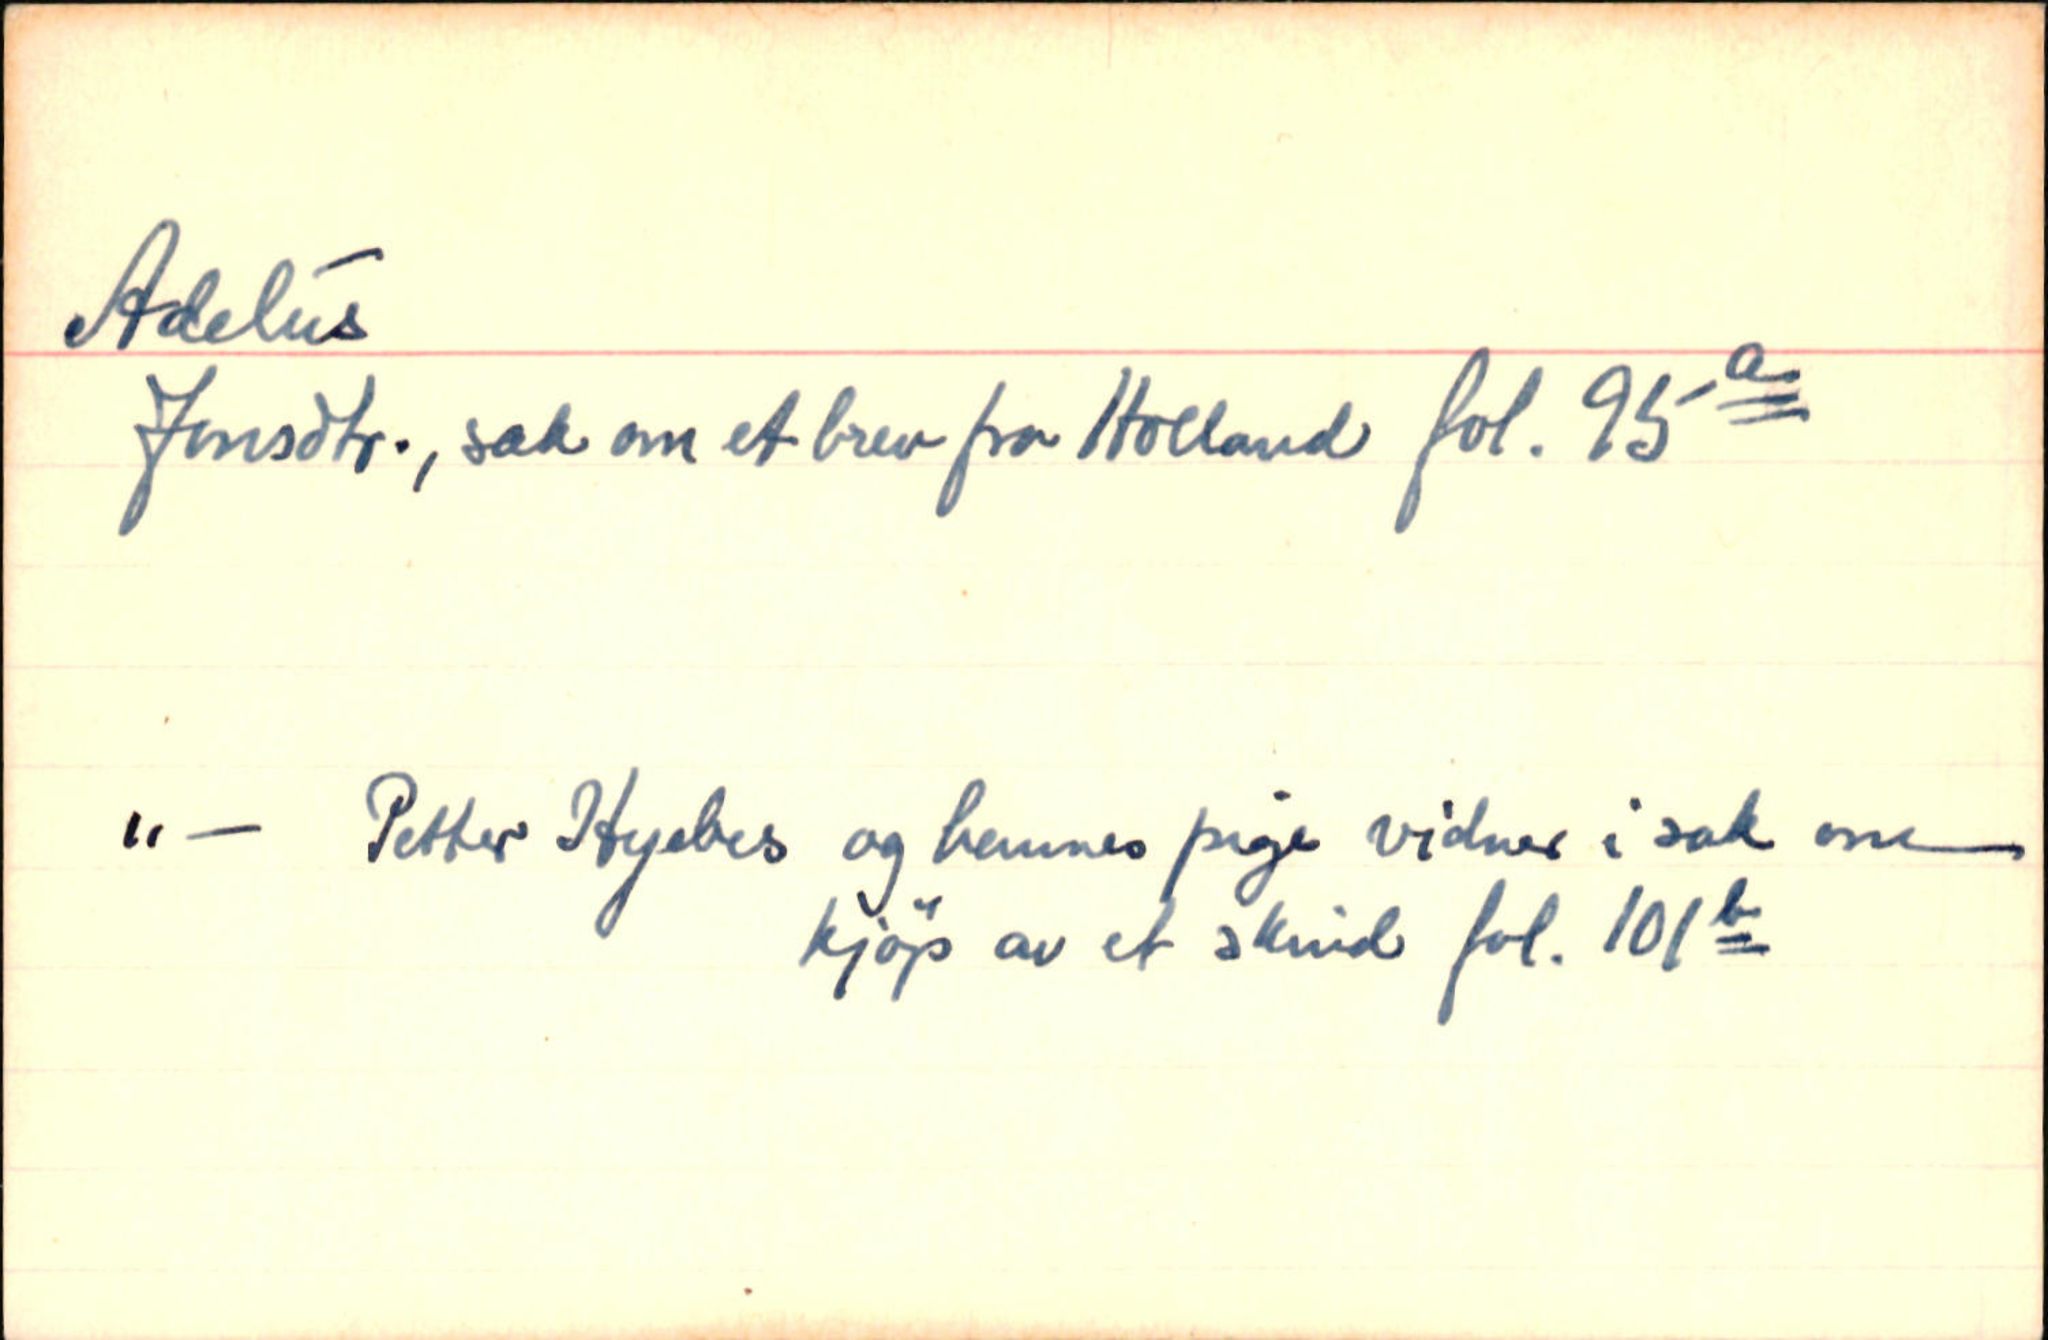 Adelus
Jonsdtr., sak om et brev fra Holland fol. 95a
"— Petter Hyebes og hennes pige vidner i sak om
kjöp av et skind fol. 101b